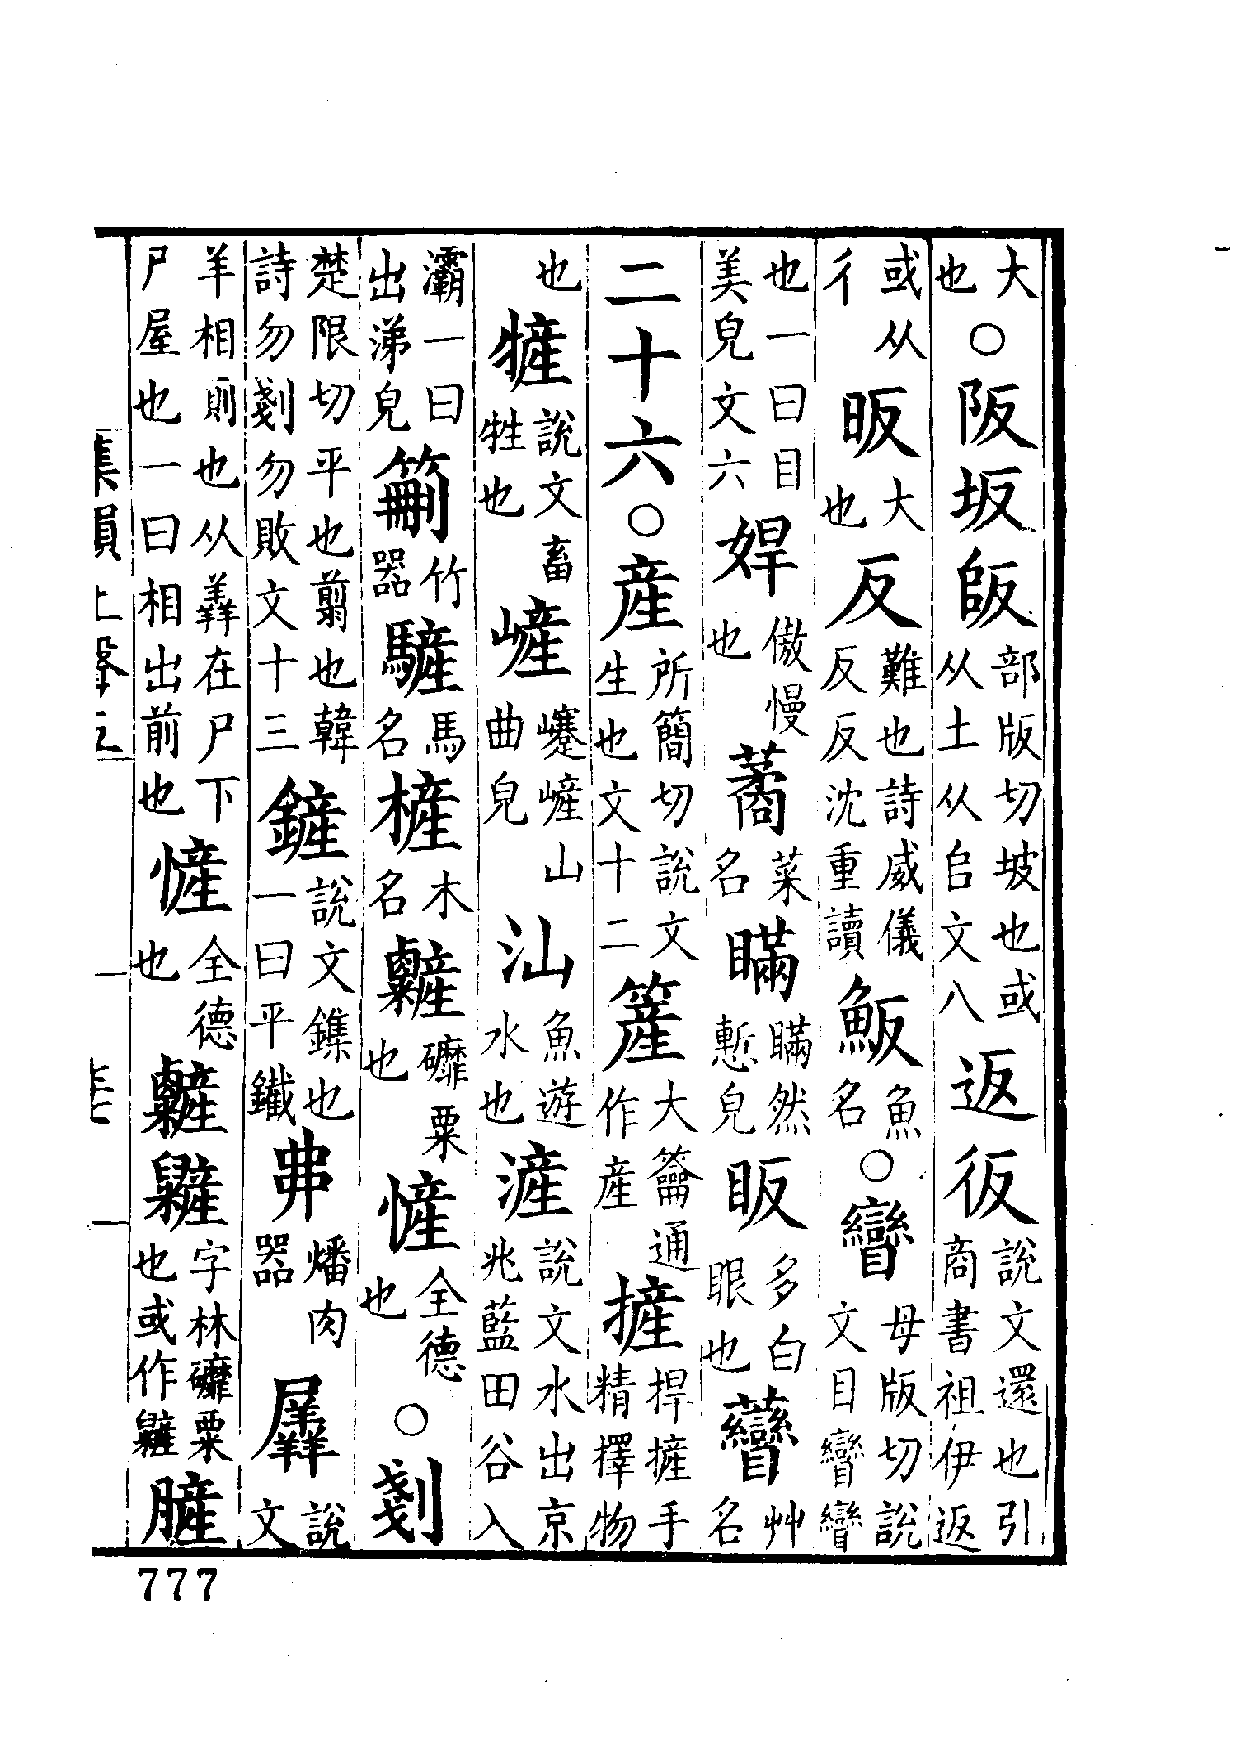 大也○阪坂 部版切坡也或从土从𠂤文八 返彶 說文還也引商書祖伊返
或从彳 昄 大也 反 難也詩威儀反反沈重讀 魬 魚名 ○矕 母版切說文目矕矕
也一曰目美皃文六 傲慢也 菜名 瞞 瞞然慙皃 眅 多白眼也 虊 艸名
二十六○產 所簡切說文生也文十二 簅 大籥通作產 摌 捍摌手精擇物
也 㹌 說文畜牲也 嵼 㠍嵼山曲皃 汕 魚遊水也 滻 說文水出京兆藍田谷入
灞一曰出涕皃 竹器 馬名 木名 粟也 㦃 全德也 ○剗
楚限切平也翦也韓詩勿剗勿敗文十三 鏟 說文鏶也一曰平鐵 丳 燔肉器 羼 說文
羊相廁也从羴在尸下尸屋也一曰相出前也 㦃 全德也 字林粟也或作
集韻上聲五
777